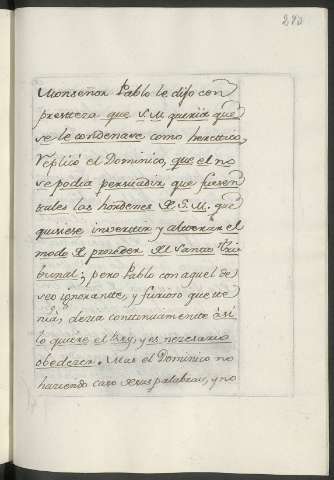 280
Monseñor Pablo le dijo con
presteza que S.M. queria que
se le condenase como heretico,
replicó el Dominico, que el no
se podia persuadir que fuesen
tales las hordenes de S.M. que
quisiese invertir y alterar el
modo de proceder del Santo Tri-
bunal; pero Pablo con aquel de
seo ignorante, y furioso que te
nia, decia continuamente asi
lo quiere el Rey, y es necesario
obedecer. Mas el Dominico no
haciendo caso de sus palabras, y no